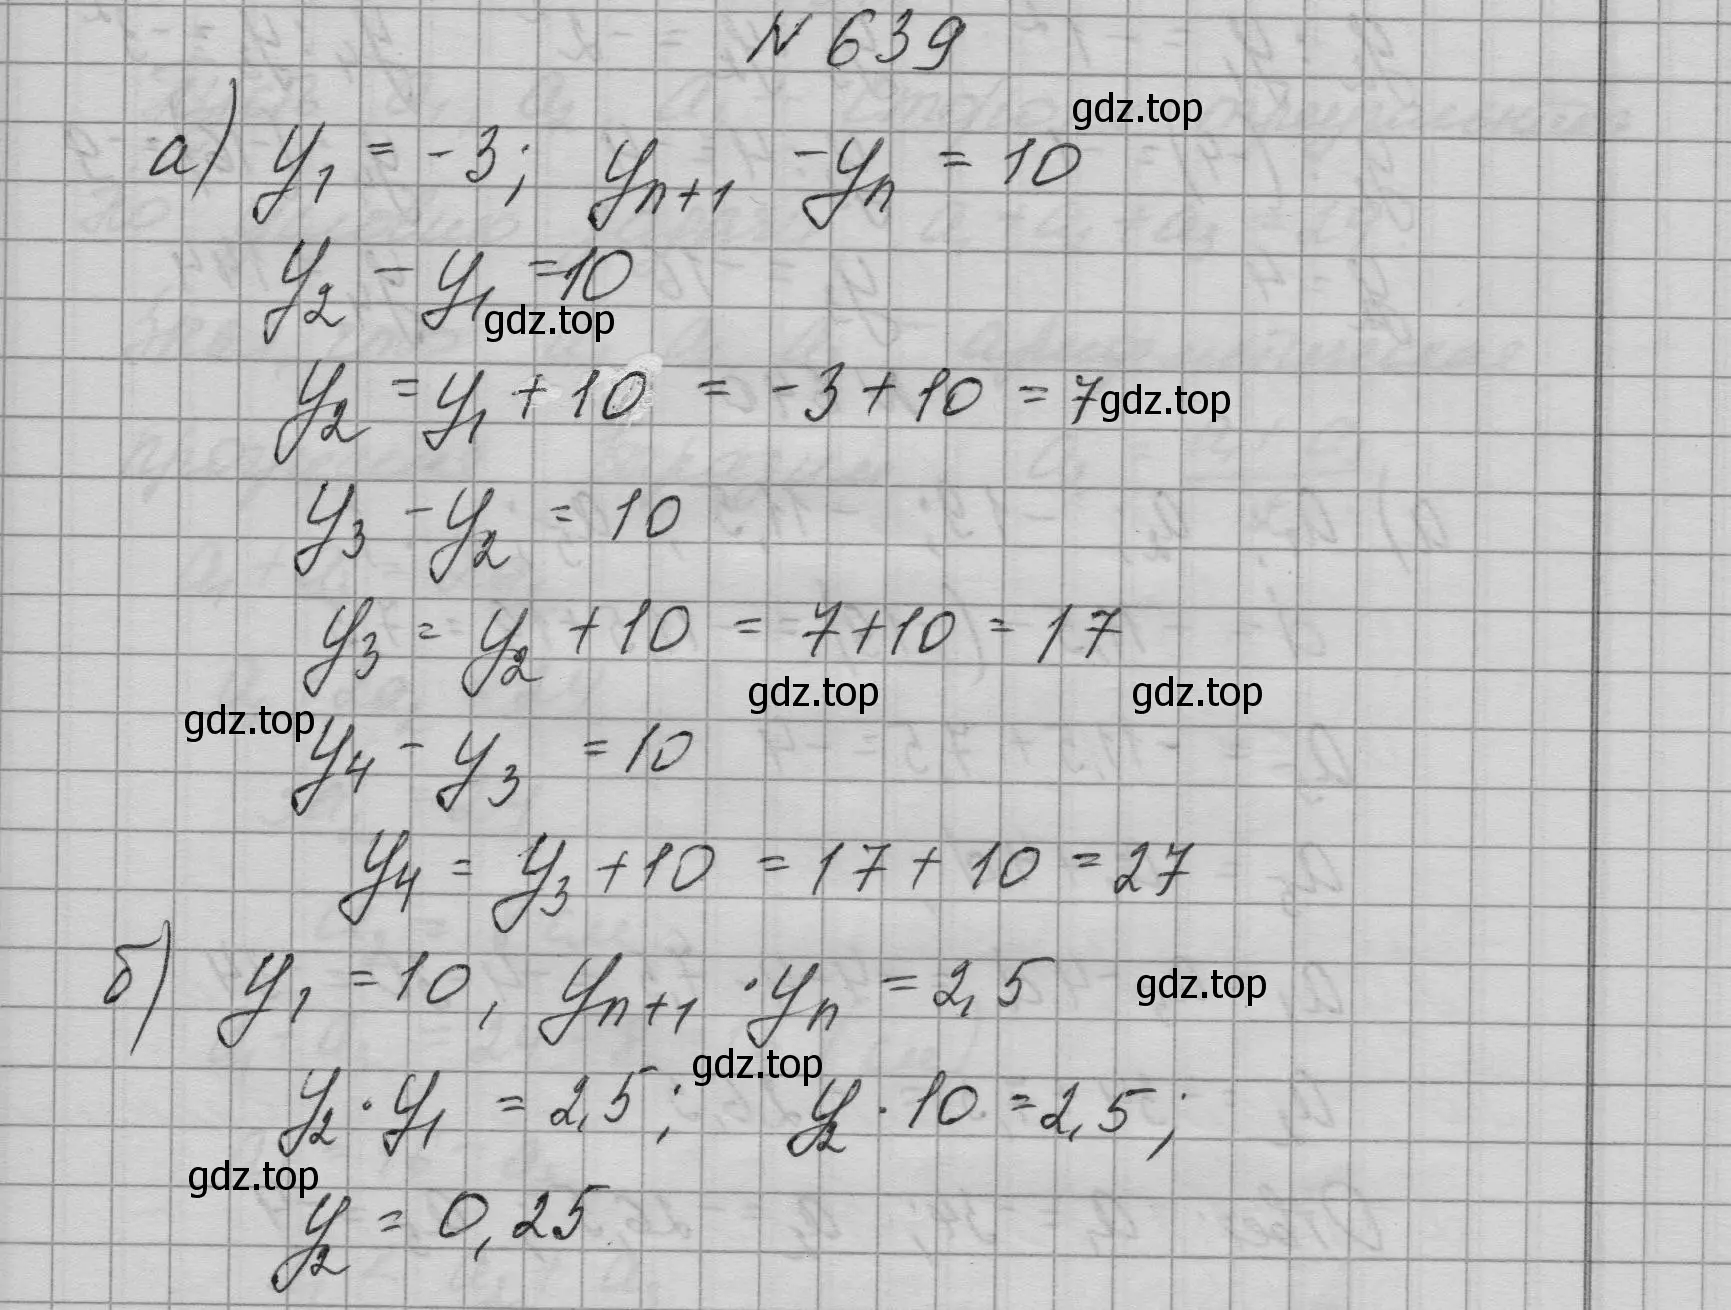 N 639
gdz.top
а) y₁ = -3; yₙ₊₁ - yₙ = 10
y₂ - y₁ = 10
gdz.top
y₂ = y₁ + 10 = -3 + 10 = 7 gdz.top
y₃ - y₂ = 10
y₃ = y₂ + 10 = 7 + 10 = 17
gdz.top gdz.top
gdz.top
y₄ - y₃ = 10
y₄ = y₃ + 10 = 17 + 10 = 27
б) y₁ = 10, yₙ₊₁ · yₙ = 2,5 gdz.top
gdz.top
y₂ · y₁ = 2,5; y₂ · 10 = 2,5;
gdz.top
y₂ = 0,25